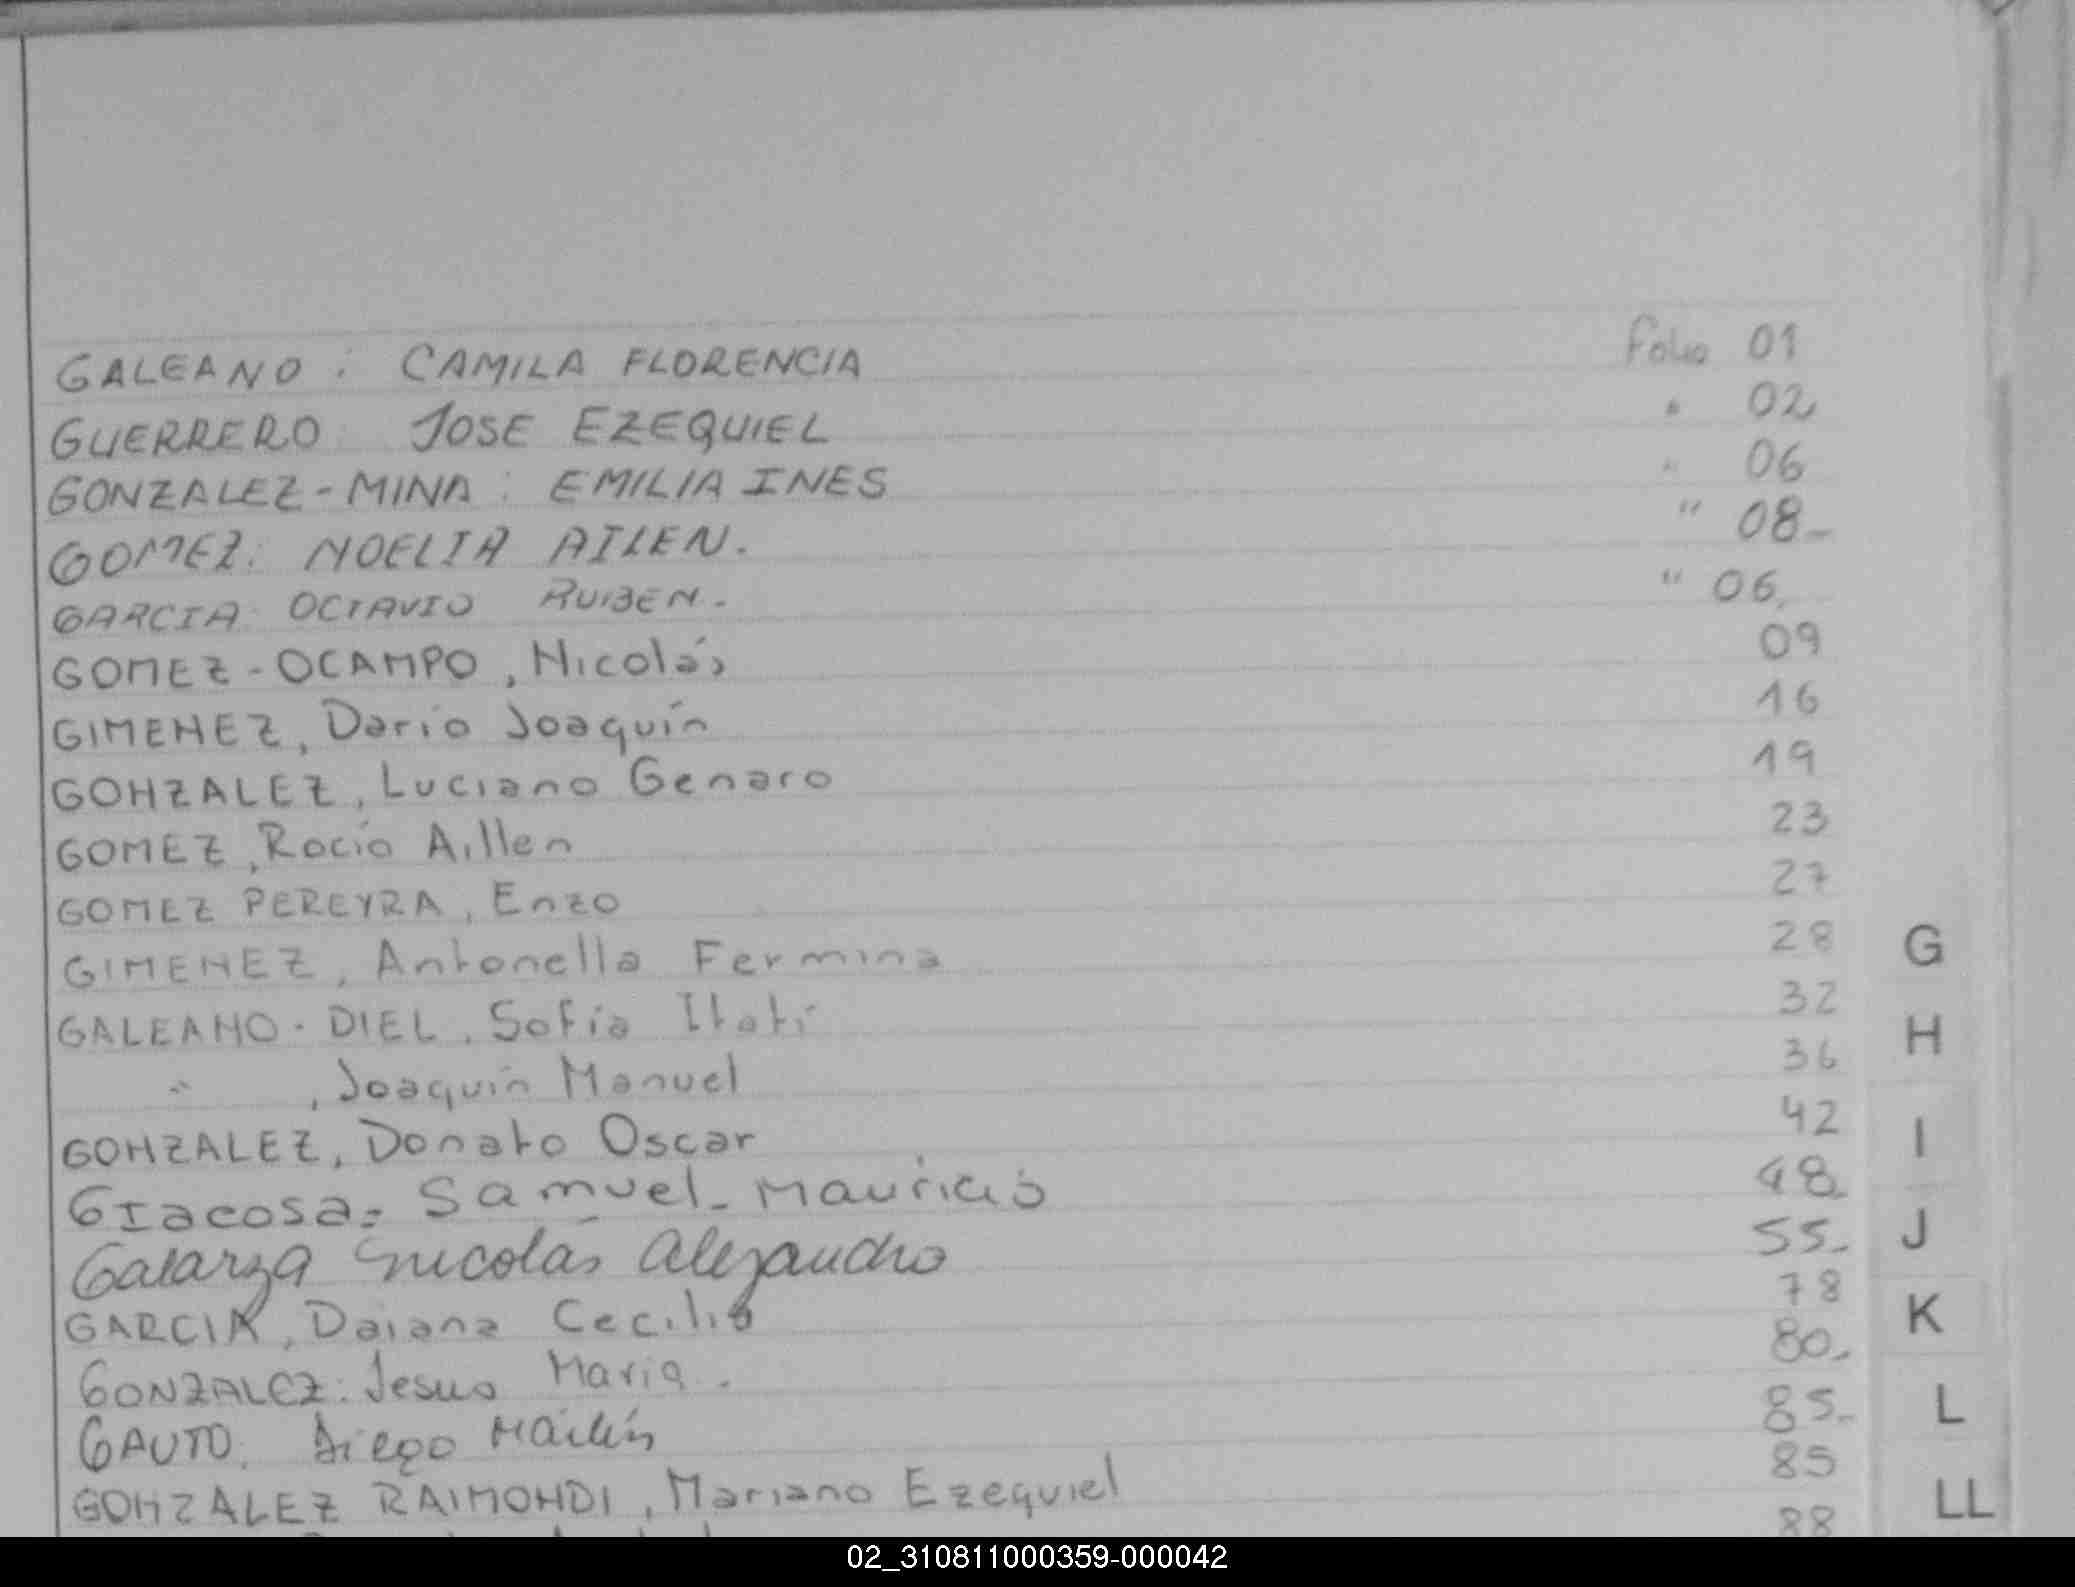 GALEANO : CAMILA FLORENCIA Folio 01
GUERRERO JOSE EZEQUIEL " 02
GONZALEZ-MINA : EMILIA INES " 06
GOMEZ: NOELIA AILEN. " 08-
GARCIA: OCTAVIO RUBEN. " 06.
GOMEZ-OCAMPO, Nicolás 09
GIMENEZ, Darío Joaquín 16
GONZALEZ, Luciano Genaro 19
GOMEZ, Rocío Aillen 23
GOMEZ PEREYRA, Enzo 27
GIMENEZ, Antonella Fermina 28
GALEANO-DIEL, Sofía Itatí 32
" , Joaquín Manuel 36
GONZALEZ, Donato Oscar 42
GIacosa= Samuel-Mauricio 48-
Galarza Nicolás Alejandro 55-
GARCIA, Daiana Cecilia 78
GONZALEZ: Jesus Maria. 80-
GAUTO. Diego Martín 85-
GONZALEZ RAIMONDI, Mariano Ezequiel 85
88
G
H
I
J
K
L
LL
02_310811000359-000042